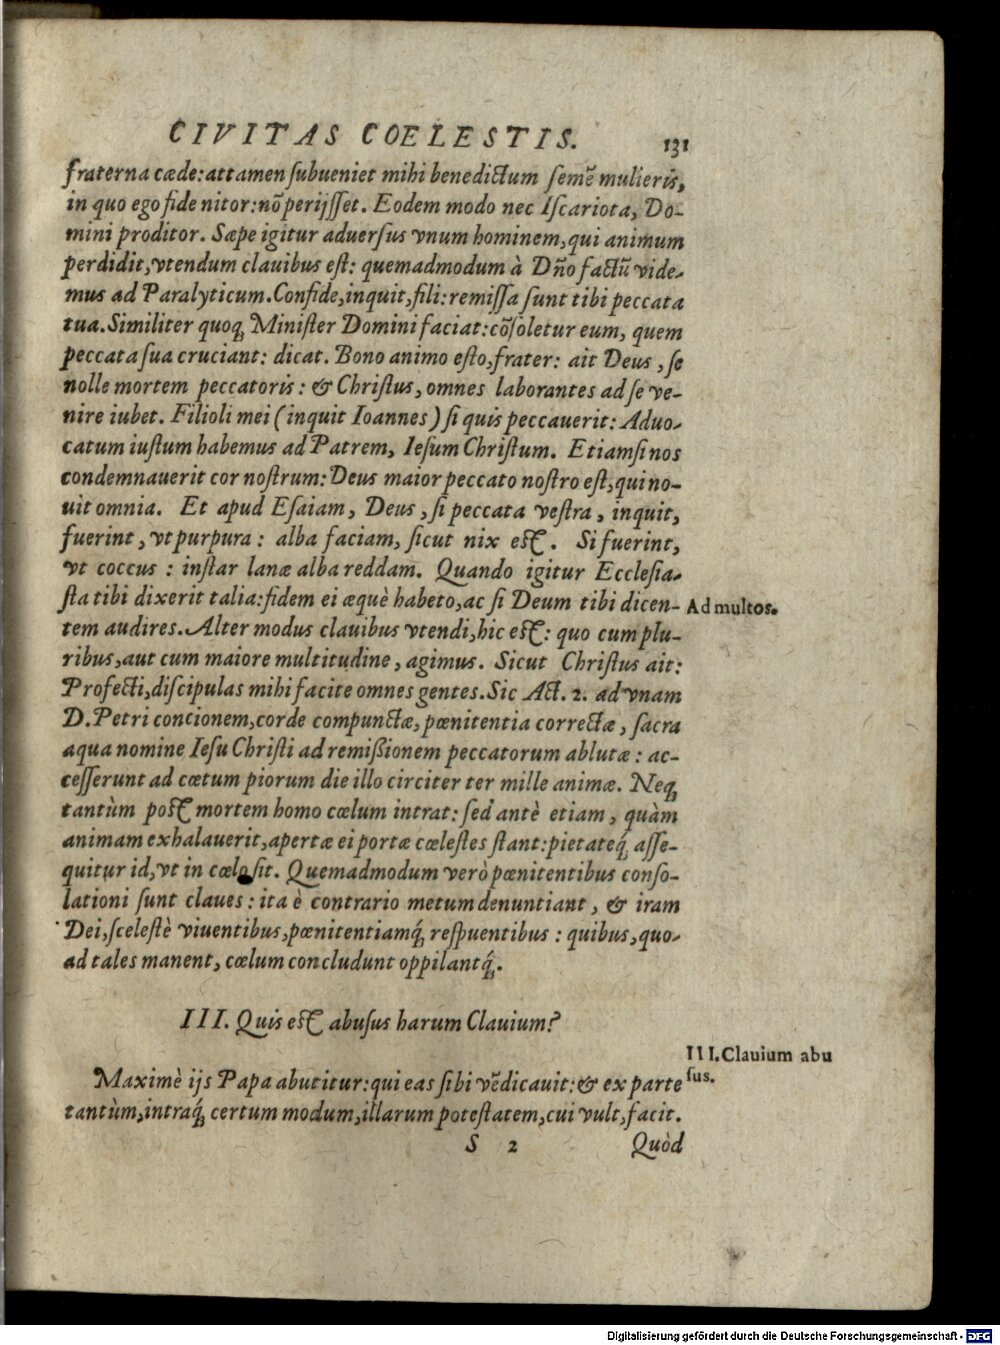 CIVITAS COELESTIS. 131
fraterna cæde: attamen ſubueniet mihi benedictum ſemẽ mulieris,
in quo ego fide nitor: nõ perijſſet. Eodem modo nec Iſcariota, Do-
mini proditor. Sæpe igitur aduerſus vnum hominem, qui animum
perdidit, vtendum clauibus eſt: quemadmodum à Dño factũ vide-
mus ad Paralyticum. Confide, inquit, fili: remiſſa ſunt tibi peccata
tua. Similiter quoq; Miniſter Domini faciat: cõſoletur eum, quem
peccata ſua cruciant: dicat. Bono animo eſto, frater: ait Deus, ſe
nolle mortem peccatoris: & Chriſtus, omnes laborantes ad ſe ve-
nire iubet. Filioli mei (inquit Ioannes) ſi quis peccauerit: Aduo-
catum iuſtum habemus ad Patrem, Ieſum Chriſtum. Etiamſi nos
condemnauerit cor noſtrum: Deus maior peccato noſtro eſt, qui no-
uit omnia. Et apud Eſaiam, Deus, ſi peccata veſtra, inquit,
fuerint, vt purpura: alba faciam, ſicut nix eſt. Si fuerint,
vt coccus: inſtar lanæ alba reddam. Quando igitur Eccleſia-
ſta tibi dixerit talia: fidem ei æquè habeto, ac ſi Deum tibi dicen-
Ad multos.
tem audires. Alter modus clauibus vtendi, hic eſt: quo cum plu-
ribus, aut cum maiore multitudine, agimus. Sicut Chriſtus ait:
Profecti, diſcipulas mihi facite omnes gentes. Sic Act. 2. ad vnam
D. Petri concionem, corde compunctæ, pœnitentia correctæ, ſacra
aqua nomine Ieſu Chriſti ad remißionem peccatorum ablutæ: ac-
ceſſerunt ad cœtum piorum die illo circiter ter mille animæ. Neq;
tantùm poſt mortem homo cœlum intrat: ſed antè etiam, quàm
animam exhalauerit, apertæ ei portæ cœleſtes ſtant: pietateq́; aſſe-
quitur id, vt in cœlo ſit. Quemadmodum verò pœnitentibus conſo-
lationi ſunt claues: ita è contrario metum denuntiant, & iram
Dei, ſceleſtè viuentibus, pœnitentiamq́; reſpuentibus: quibus, quo-
ad tales manent, cœlum concludunt oppilantq́;.
III. Quis eſt abuſus harum Clauium?
III. Clauium abu
ſus.
Maximè ijs Papa abutitur: qui eas ſibi vẽdicauit: & ex parte
tantùm, intraq́; certum modum, illarum poteſtatem, cui vult, facit.
S 2 Quòd
Digitalisierung gefördert durch die Deutsche Forschungsgemeinschaft - DFG